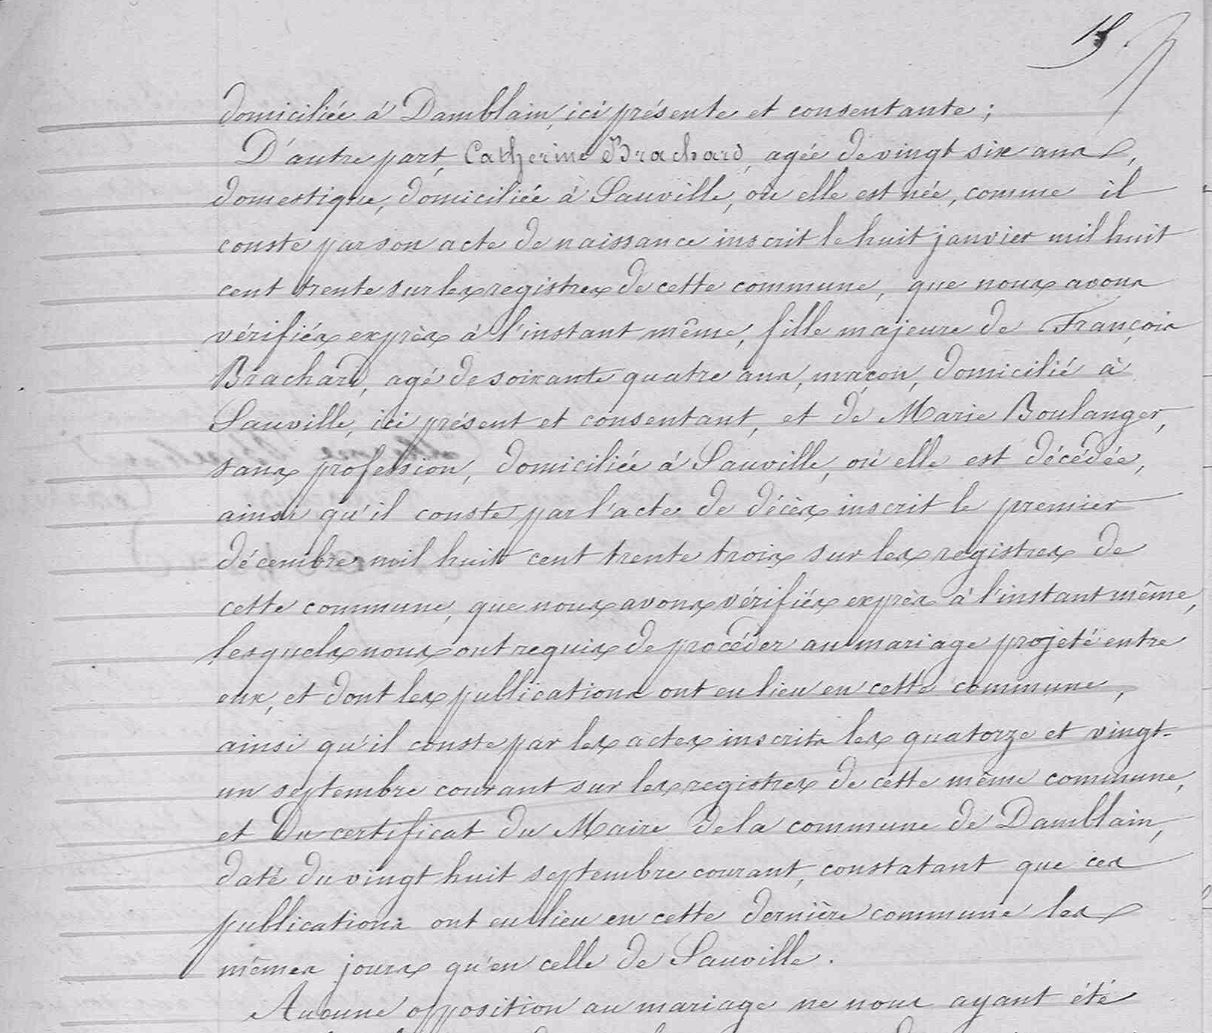 15
domiciliée à Damblain, ici présente et consentante ;
D'autre part, Catherine Brachard, agée de vingt six ans,
domestique, domiciliée à Sauville, où elle est née, comme il
conste par son acte de naissance inscrit le huit janvier mil huit
cent trente sur les registres de cette commune, que nous avons
vérifiés exprès à l'instant même, fille majeure de François
Brachard, agé de soixante quatre ans, maçon, domicilié à
Sauville, ici présent et consentant, et de Marie Boulanger,
sans profession, domiciliée à Sauville, où elle est décédée,
ainsi qu'il conste par l'acte de décès inscrit le premier
décembre mil huit cent trente trois sur les registres de
cette commune, que nous avons vérifiés exprès à l'instant même,
lesquels nous ont requis de procéder au mariage projeté entre
eux, et dont les publications ont eu lieu en cette commune,
ainsi qu'il conste par les actes inscrits les quatorze et vingt-
un septembre courant sur les registres de cette même commune,
et du certificat du Maire de la commune de Damblain,
daté du vingt huit septembre courant, constatant que ces
publications ont eu lieu en cette dernière commune les
mêmes jours qu'en celle de Sauville.
Aucune opposition au mariage ne nous ayant été